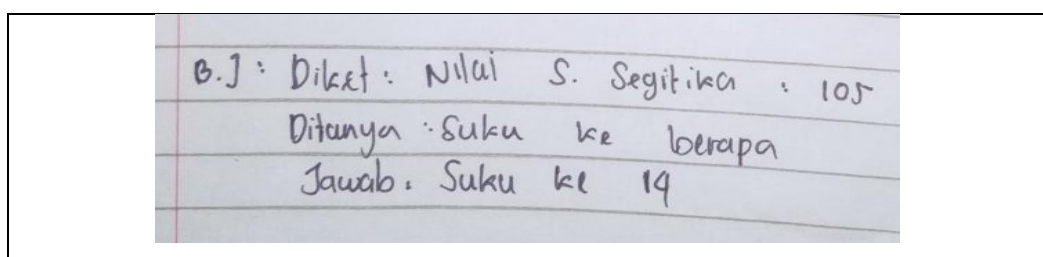 B.J : Diket : Nilai S. Segitika : 105
Ditanya : Suku ke berapa
Jawab : Suku ke 14